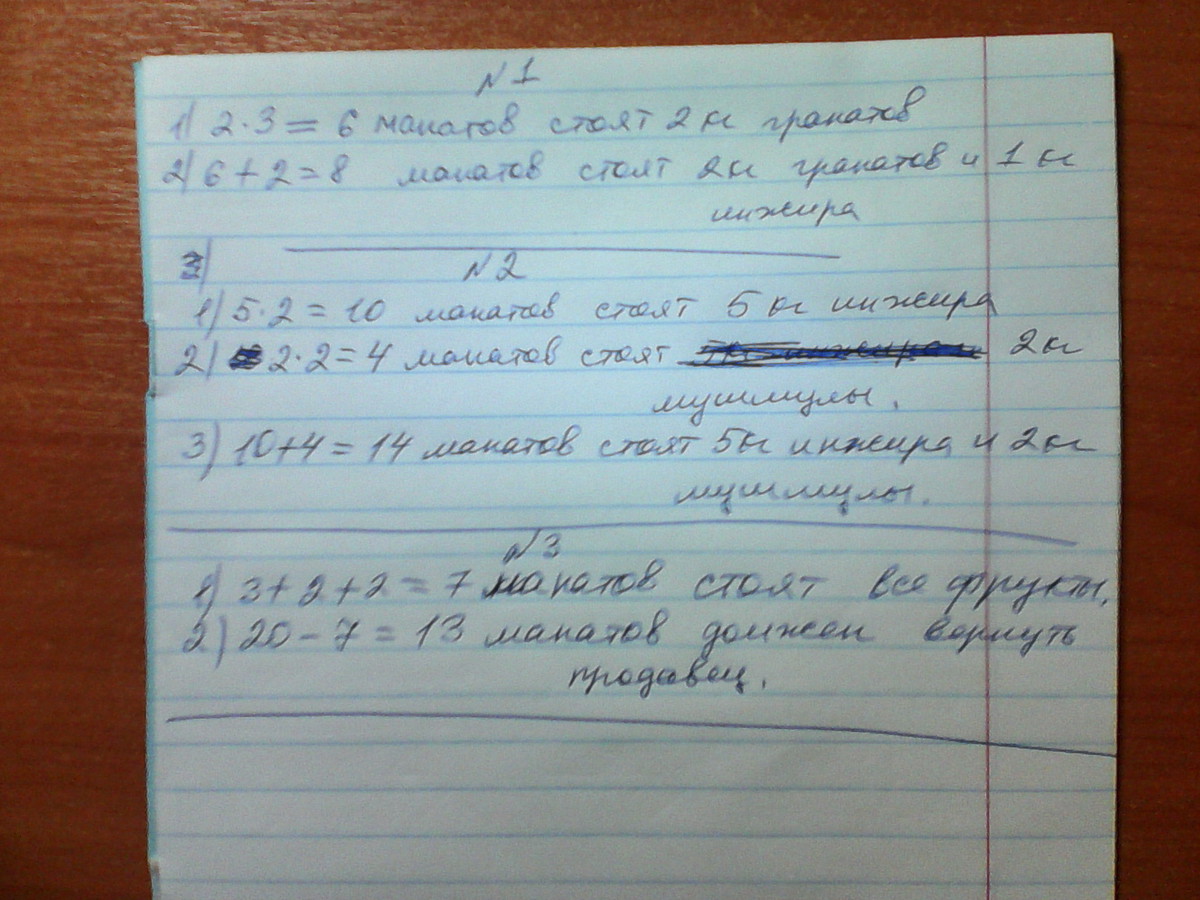 №1
1) 2·3=6 манатов стоят 2кг гранатов
2) 6+2=8 манатов стоят 2кг гранатов и 1кг
инжира
3)
№2
1) 5·2=10 манатов стоят 5кг инжира
2) 2·2=4 манатов стоят 2кг
мушмулы.
3) 10+4=14 манатов стоят 5кг инжира и 2кг
мушмулы.
№3
1) 3+2+2=7 манатов стоят все фрукты.
2) 20-7=13 манатов должен вернуть
продавец.